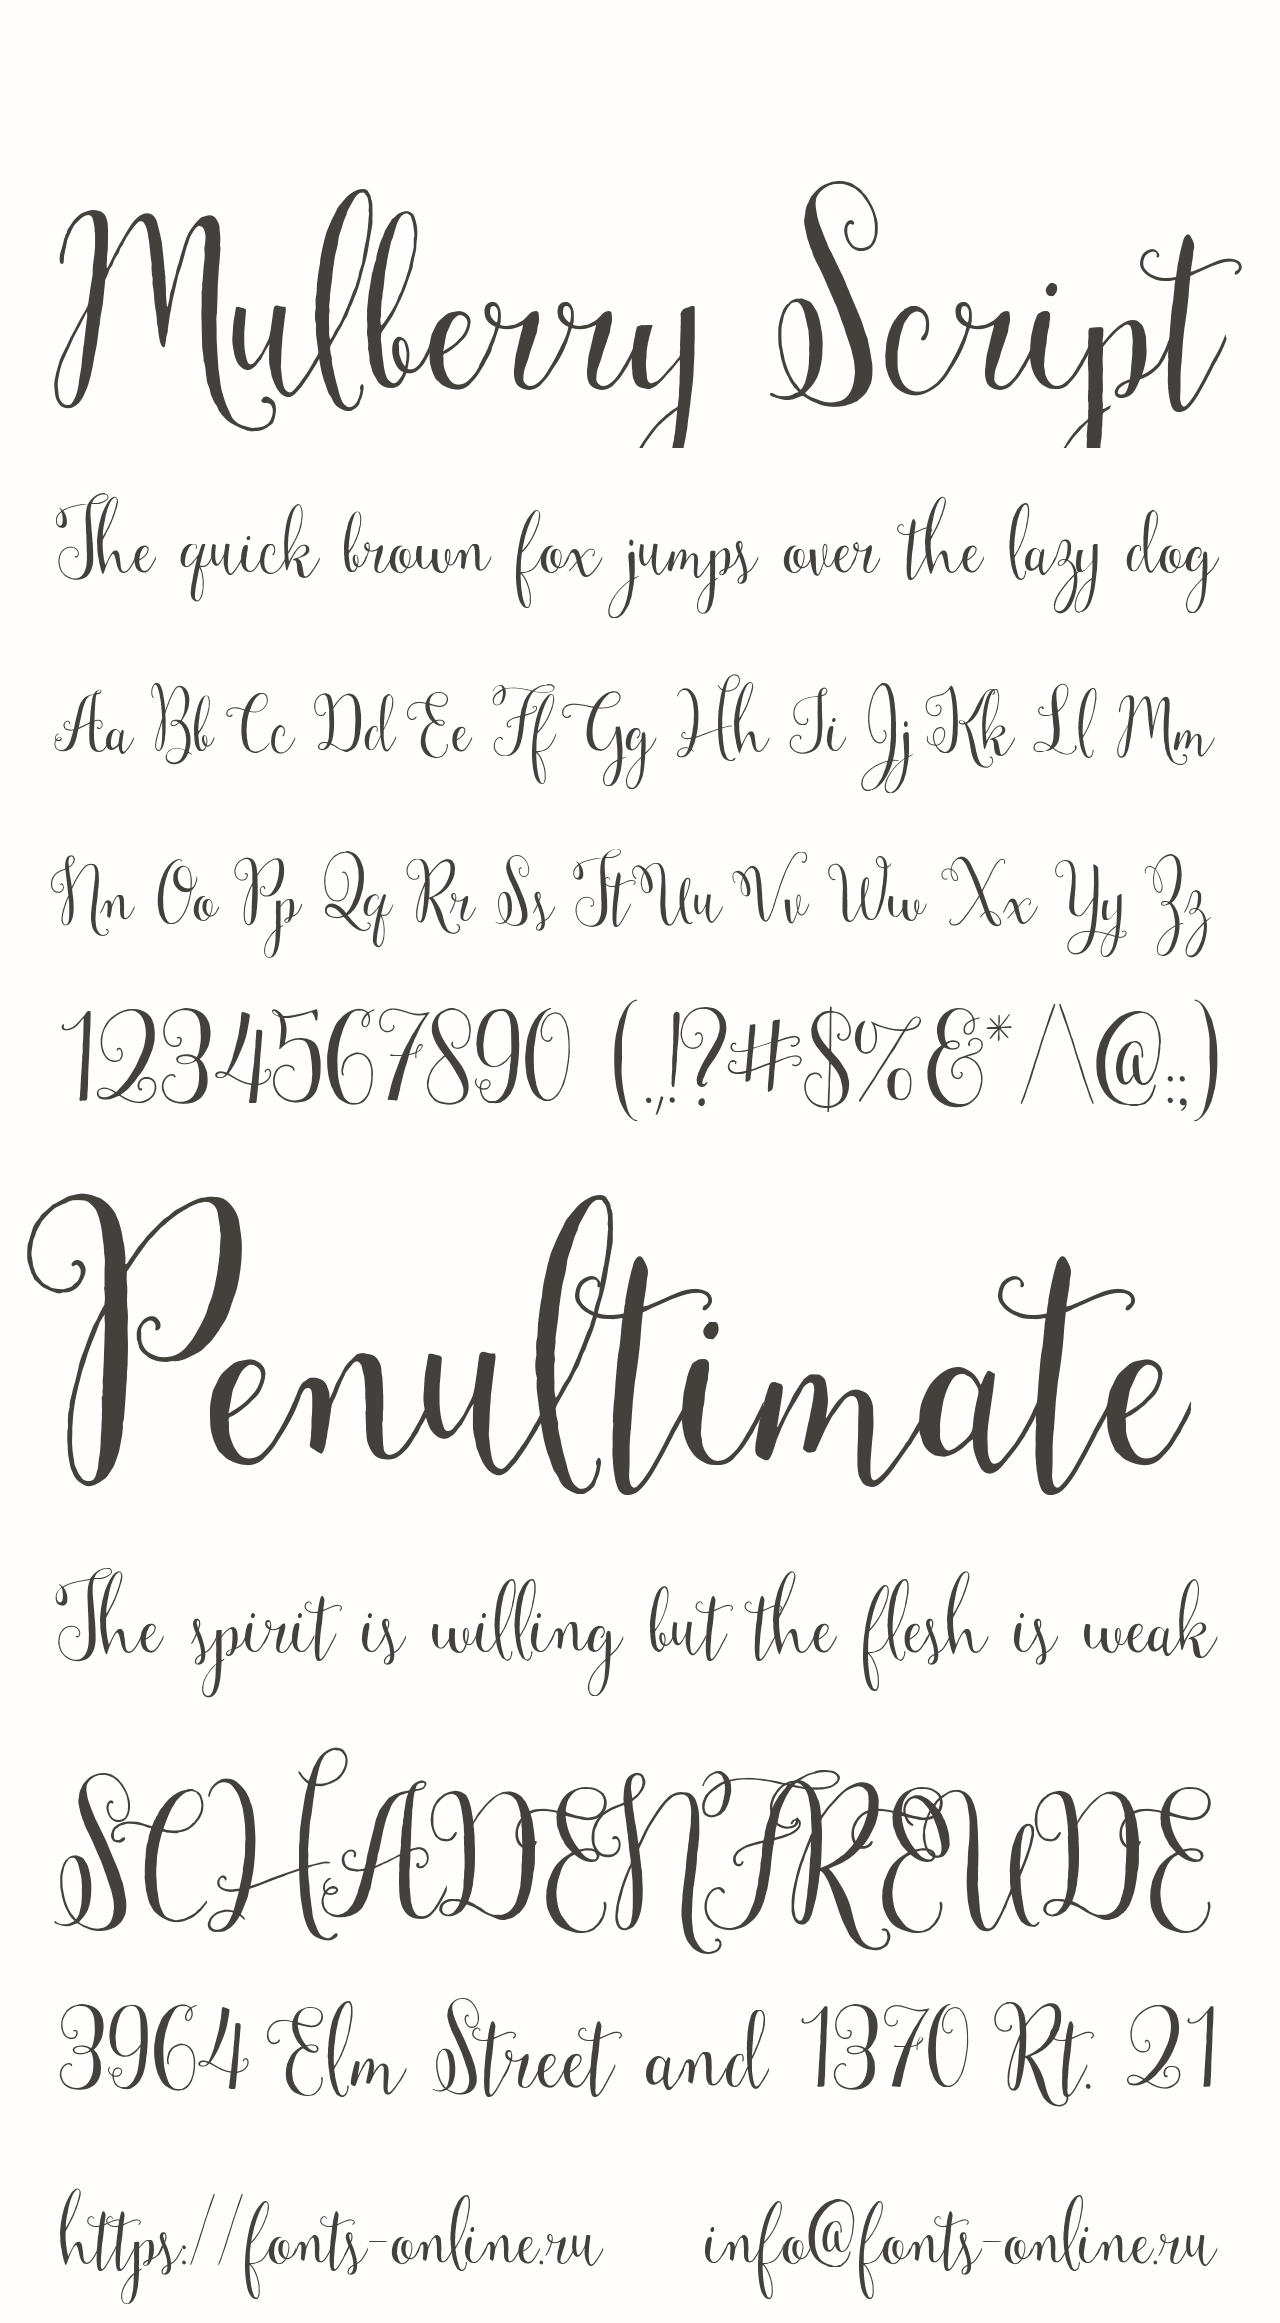 Mulberry Script
The quick brown fox jumps over the lazy dog
Aa Bb Cc Dd Ee Ff Gg Hh Ii Jj Kk Ll Mm
Nn Oo Pp Qq Rr Ss Tt Uu Vv Ww Xx Yy Zz
1234567890 (.,!?#$%&*/\@:;)
Penultimate
The spirit is willing but the flesh is weak
SCHADENFREUDE
3964 Elm Street and 1370 Rt. 21
https://fonts-online.ru info@fonts-online.ru